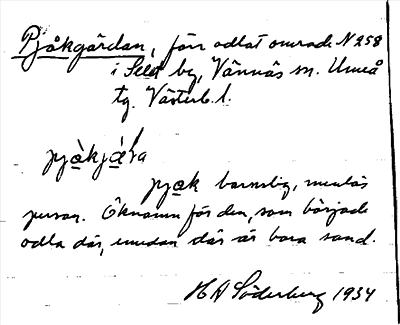 Pjåkgärdan, förr odlat område N 258
i Selet by, Vännäs sn. Umeå
tg. Västerb. l.
pjåkjála
pjåk barnslig, menlös
person. Öknamn för den, som började
odla där, emedan där är bara sand.
H A Söderberg 1934